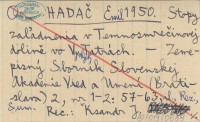 HADAČ Emil 1950. Stopy
zaľadnenia v Temnosmrečinovej
doline vo Vys. Tatrách. – Zeme-
pisný Sborník Slovenskej
Akadémie Vied a Umení (Brati-
slava) 2, nr. 1-2: 57-63, Réz.,
Sum. Rec.: Ksandr J.